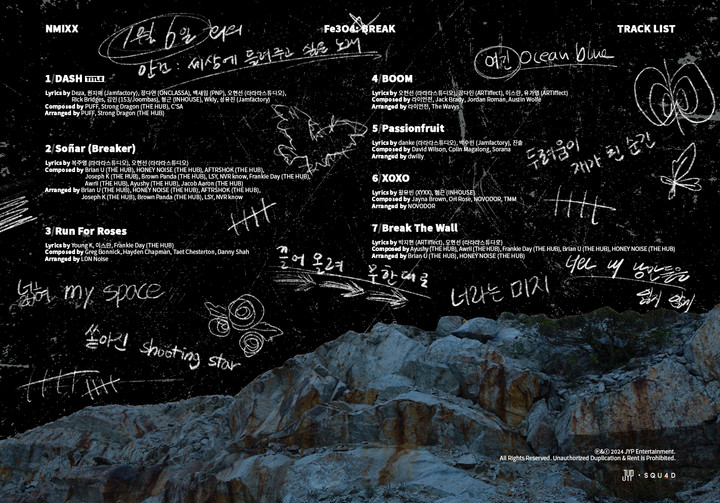 NMIXX
Fe3O4: BREAK
TRACK LIST
1월 6일
세상에 들려주고 싶은 노래
여긴 Ocean blue
1/DASH TITLE
Lyrics by Deza, 현지혜 (Jamfactory), 정다연 (ONCLASSA), 백새임 (PNP), 오현선 (라라라스튜디오),
Rick Bridges, 김인 (153/Joombas), 형근 (INHOUSE), Wkly, 성유진 (Jamfactory)
Composed by PUFF, Strong Dragon (THE HUB), C'SA
Arranged by PUFF, Strong Dragon (THE HUB)
2/Soñar (Breaker)
Lyrics by 복주영 (라라라스튜디오), 오현선 (라라라스튜디오)
Composed by Brian U (THE HUB), HONEY NOISE (THE HUB), AFTRSHOK (THE HUB),
Joseph K (THE HUB), Brown Panda (THE HUB), LSY, NVR know, Frankie Day (THE HUB),
Awrii (THE HUB), Ayushy (THE HUB), Jacob Aaron (THE HUB)
Arranged by Brian U (THE HUB), HONEY NOISE (THE HUB), AFTRSHOK (THE HUB),
Joseph K (THE HUB), Brown Panda (THE HUB), LSY, NVR know
3/Run For Roses
Lyrics by Young K, 이스란, Frankie Day (THE HUB)
Composed by Greg Bonnick, Hayden Chapman, Taet Chesterton, Danny Shah
Arranged by LDN Noise
4/BOOM
Lyrics by 오현선 (라라라스튜디오), 이스란, 유가영 (ARTiffect)
Composed by 라이언전, Jack Brady, Jordan Roman, Austin Wolfe
Arranged by 라이언전, The Wavys
5/Passionfruit
Lyrics by danke (라라라스튜디오), (Jamfactory), 진솔
Composed by David Wilson, Colin Magalong, Sorana
Arranged by dwilly
6/XOXO
Lyrics by (XYXX), 형근 (INHOUSE)
Composed by Jayna Brown, Ori Rose, NOVODOR, TMM
Arranged by NOVODOR
7/Break The Wall
Lyrics by 박지현 (ARTiffect), 오현선 (라라라스튜디오)
Composed by Ayushy (THE HUB), Awrii (THE HUB), Frankie Day (THE HUB), Brian U (THE HUB), HONEY NOISE (THE HUB)
Arranged by Brian U (THE HUB), HONEY NOISE (THE HUB)
두려움이
자유 된 순간
끌어 올려
무한대로
너와 내 낭만들을
넓혀 my space
너라는 미지
쏟아진 shooting star
Ⓟ&ⓒ 2024 JYP Entertainment.
All Rights Reserved. Unauthorized Duplication & Rent is Prohibited.
JYP · SQU4D